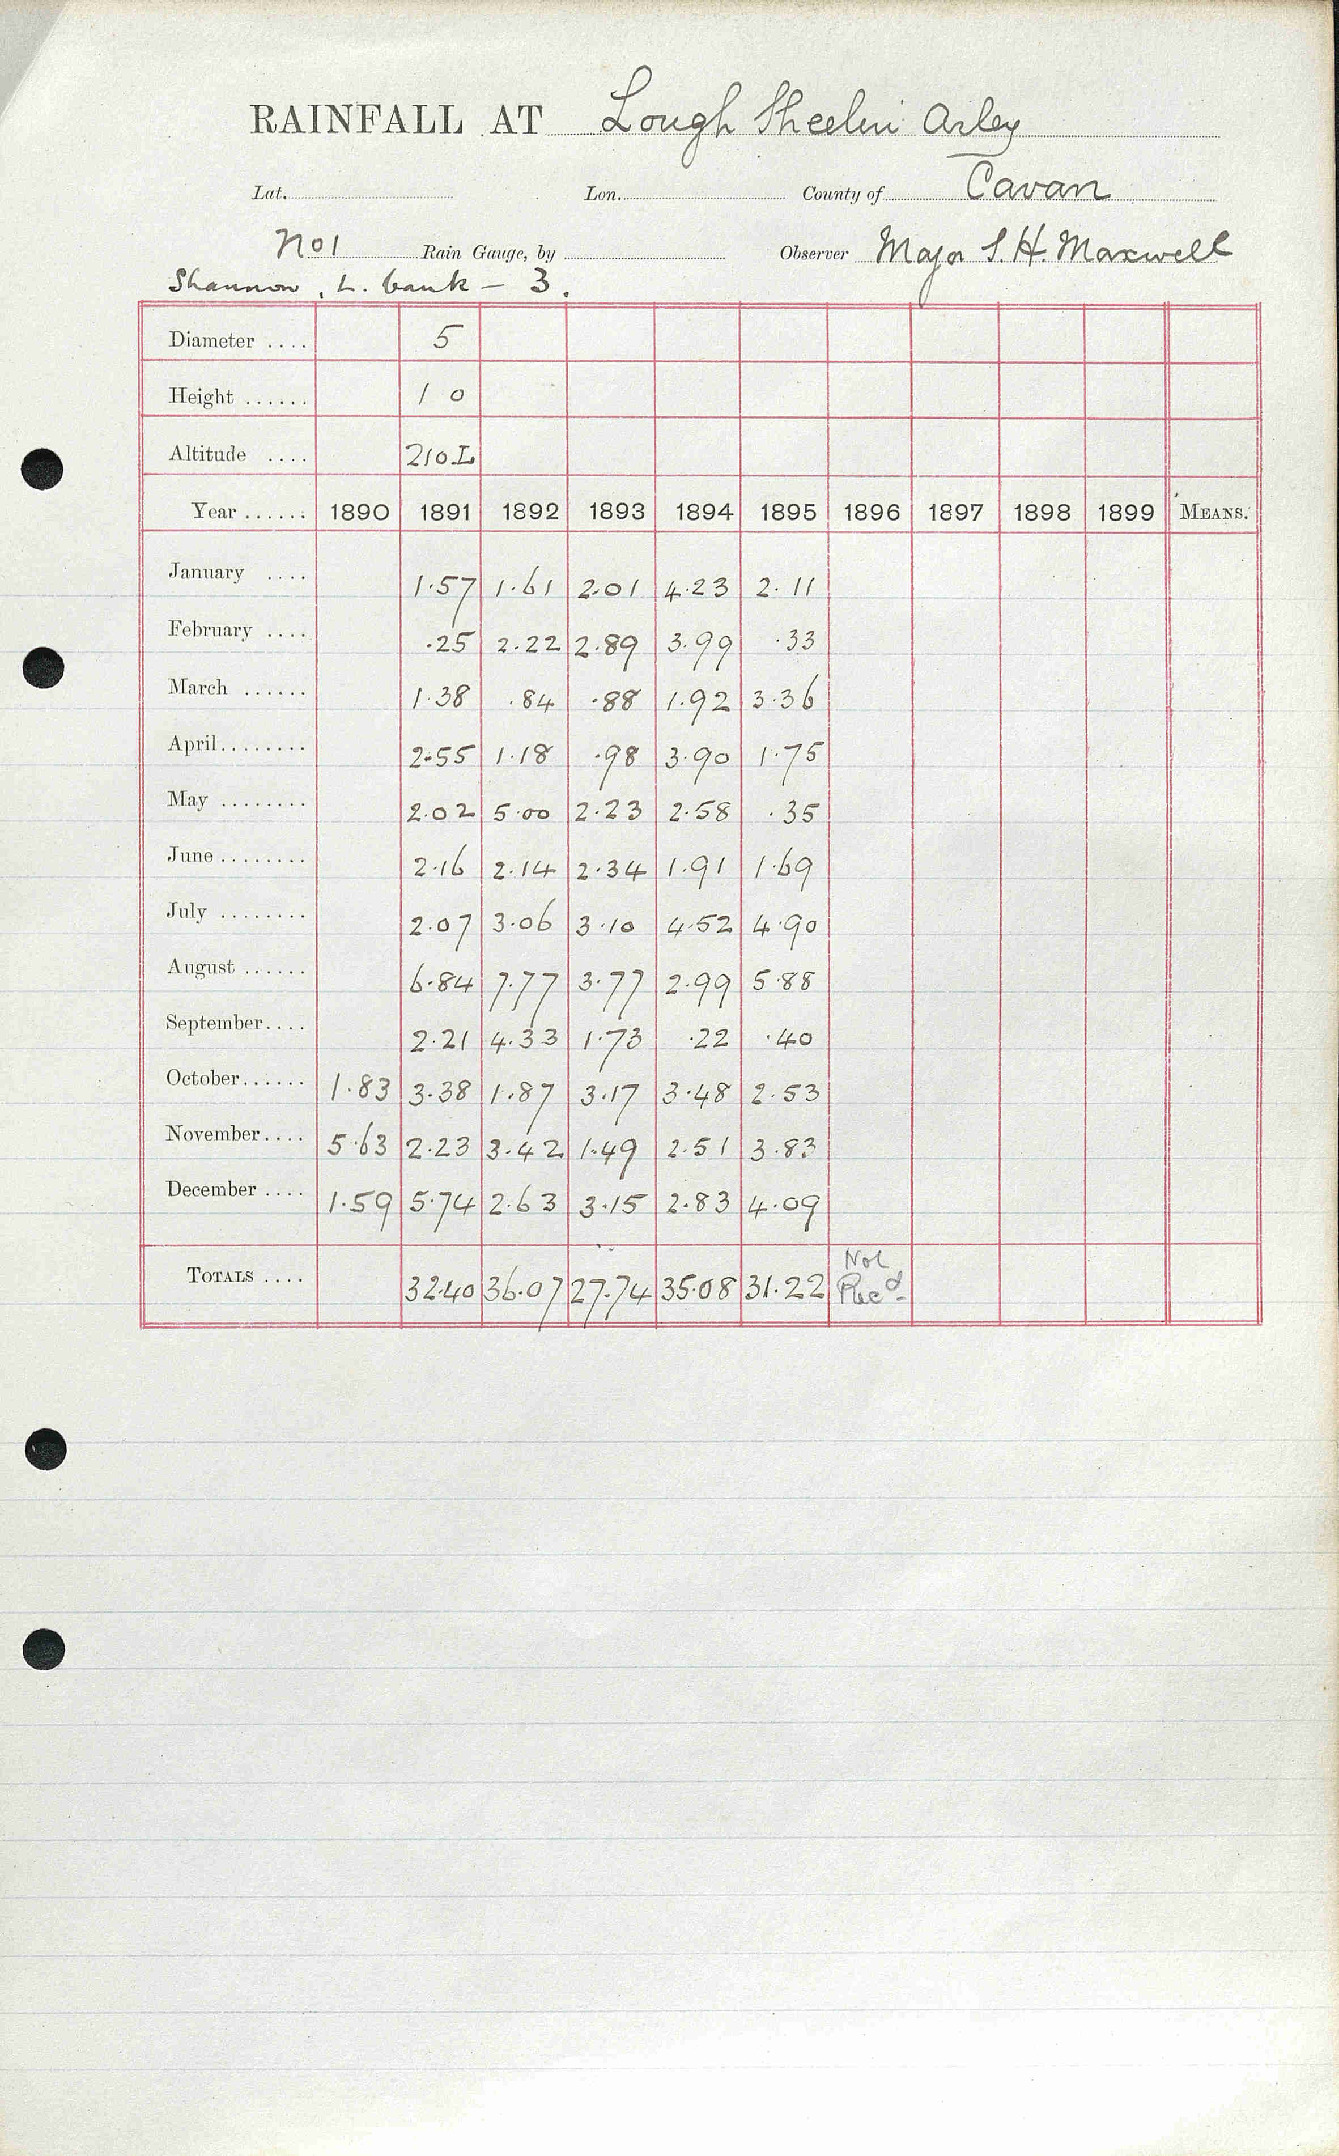 RAINFALL AT Lough Sheelin Arley
Lat. Lon. County of Cavan
No 1 Rain Gauge, by Observer Major S. H. Maxwell
Shannon, L. bank - 3.
Diameter .... 5
Height ...... 1 0
Altitude .... 210 L
Year ...... 1890 1891 1892 1893 1894 1895 1896 1897 1898 1899 MEANS.
January .... 1.57 1.61 2.01 4.23 2.11
February .... .25 2.22 2.89 3.99 .33
March ...... 1.38 .84 .88 1.92 3.36
April ........ 2.55 1.18 .98 3.90 1.75
May ........ 2.02 5.00 2.23 2.58 .35
June ........ 2.16 2.14 2.34 1.91 1.69
July ........ 2.07 3.06 3.10 4.52 4.90
August ...... 6.84 7.77 3.77 2.99 5.88
September .... 2.21 4.33 1.73 .22 .40
October ...... 1.83 3.38 1.87 3.17 3.48 2.53
November .... 5.63 2.23 3.42 1.49 2.51 3.83
December .... 1.59 5.74 2.63 3.15 2.83 4.09
Not
TOTALS .... 32.40 36.07 27.74 35.08 31.22 Recd